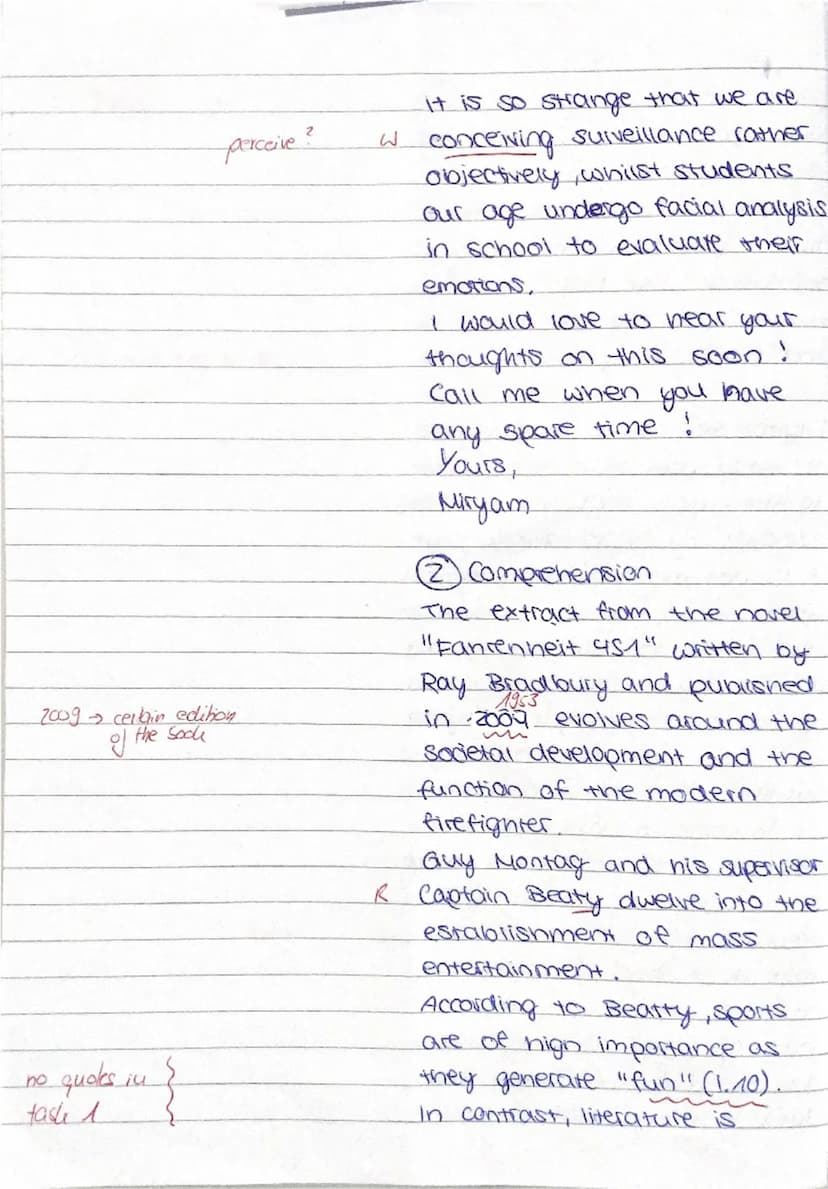 It is so strange that we are
perceive? W conceiving surveillance rather
objectively, whilst students
our age undergo facial analysis
in school to evaluate their
emotions.
I would love to hear your
thoughts on this soon!
Call me when you have
any spare time!
Yours,
Miryam
2 Comprehension
The extract from the novel
"Fahrenheit 451" written by
Ray Bradbury and published
1953
2009 → certain edition in 2009 evolves around the
of the book societal development and the
function of the modern
firefighter.
Guy Montag and his supervisor
R Captain Beaty dwelve into the
establishment of mass
entertainment.
According to Beatty, sports
are of high importance as
no quotes in they generate "fun" (l.10).
task 1 In contrast, literature is